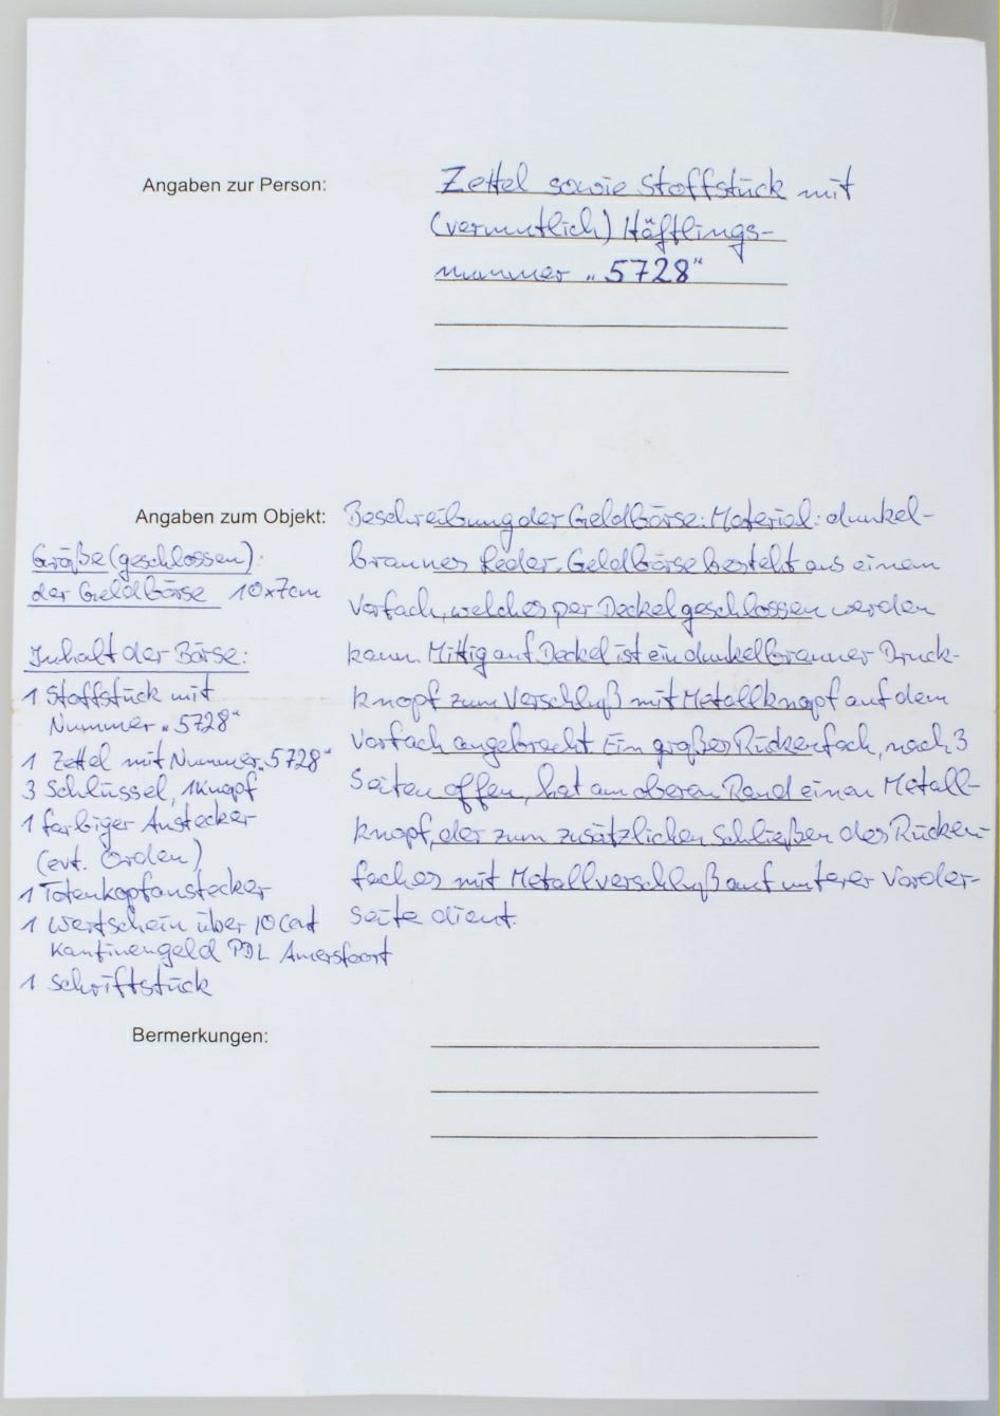 Angaben zur Person:
Zettel sowie Stoffstück mit
(vermutlich) Häftlings-
nummer „5728“
Angaben zum Objekt:
Größe (geschlossen)
der Geldbörse 10x7cm
Inhalt der Börse:
1 Stoffstück mit
Nummer „5728“
1 Zettel mit Nummer „5728“
3 Schlüssel, 1 Knopf
1 farbiger Anstecker
(evt. Orden)
1 Totenkopfanstecker
1 Wertschein über 10 Cent
Kantinengeld PDL Amersfoort
1 Schriftstück
Beschreibung der Geldbörse: Material: dunkel-
braunes Leder. Geldbörse besteht aus einem
Vorfach, welches per Deckel geschlossen werden
kann. Mittig auf Deckel ist ein dunkelbrauner Druck-
knopf zum Verschluß mit Metallknopf auf dem
Vorfach angebracht. Ein großes Rückenfach, nach 3
Seiten offen, hat am oberen Rand einen Metall-
knopf, der zum zusätzlichen Schließen des Rücken-
faches mit Metallverschluß auf unterer Vorder-
seite dient.
Bermerkungen: